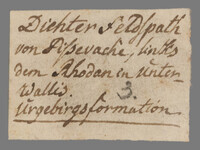 Dichter Feldspath
von Pissevache, links
dem Rhodan in Unter-
wallis. 3.
Urgebirgsformation.